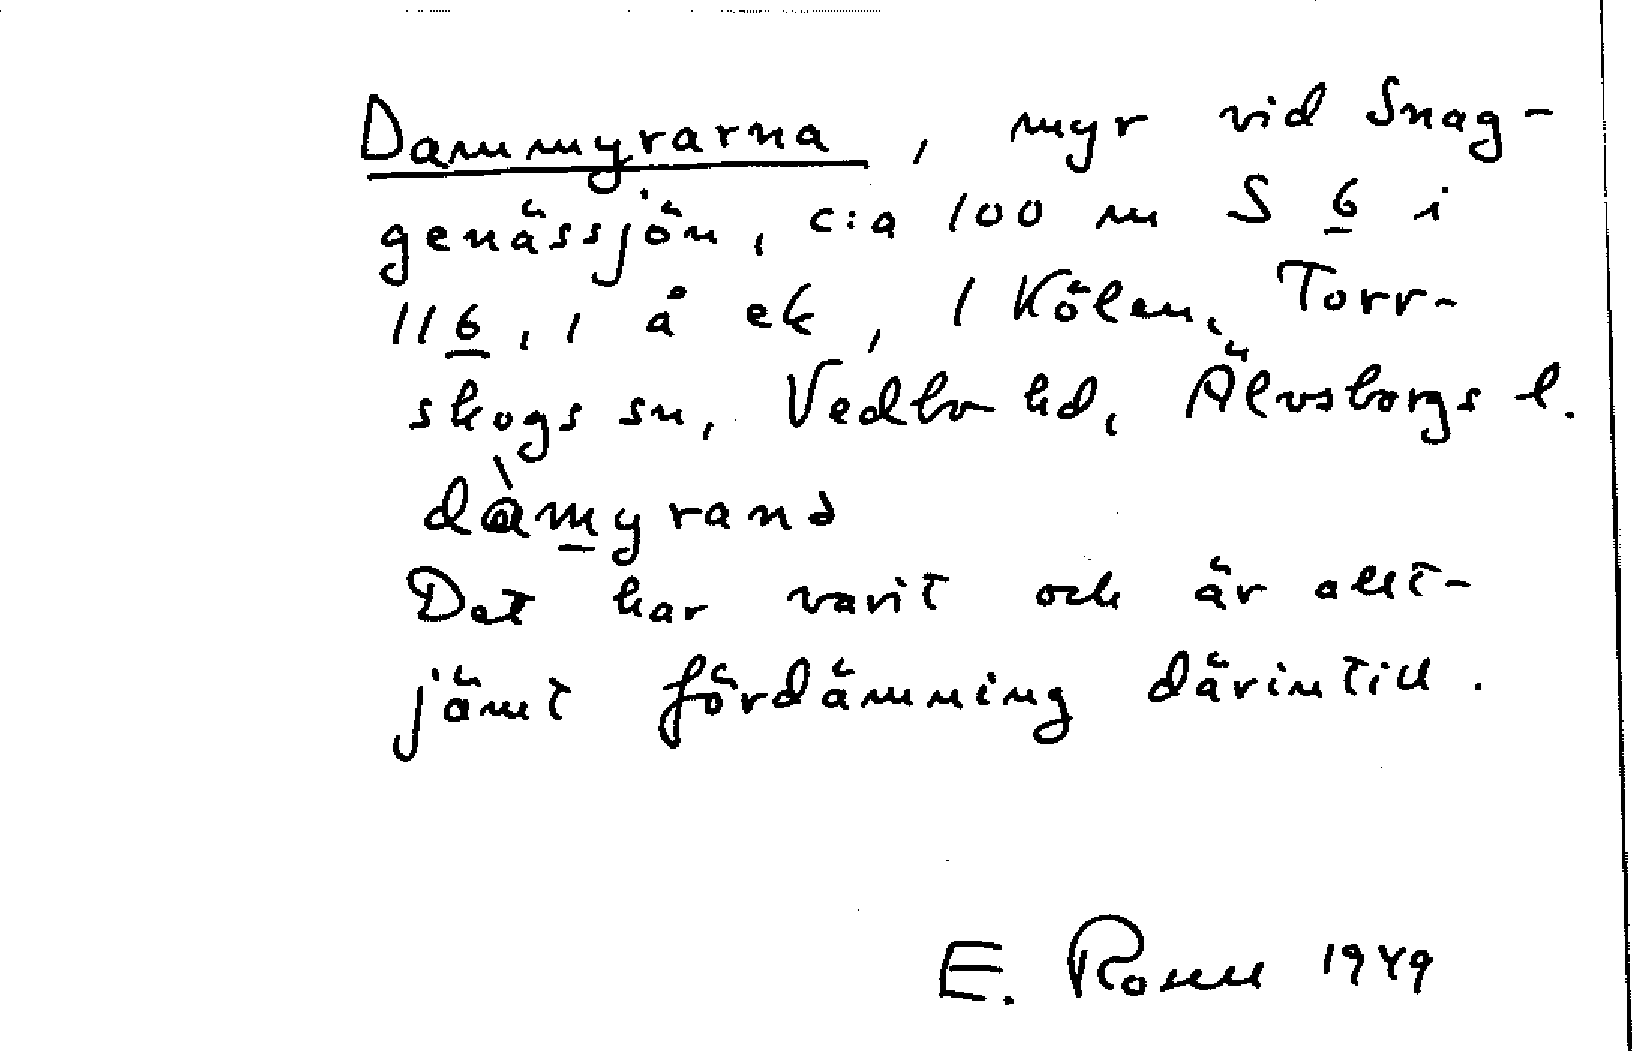 Dammyrarna, myr vid Snag-
genässjön, c:a 100 m S 6 i
116, 1 å ek, 1 Kölen, Torr-
skogs sn, Vedbo hd, Älvsborgs l.
dàmyranə
Det har varit och är allt-
jämt fördämning därintill.
E. Rosell 1949